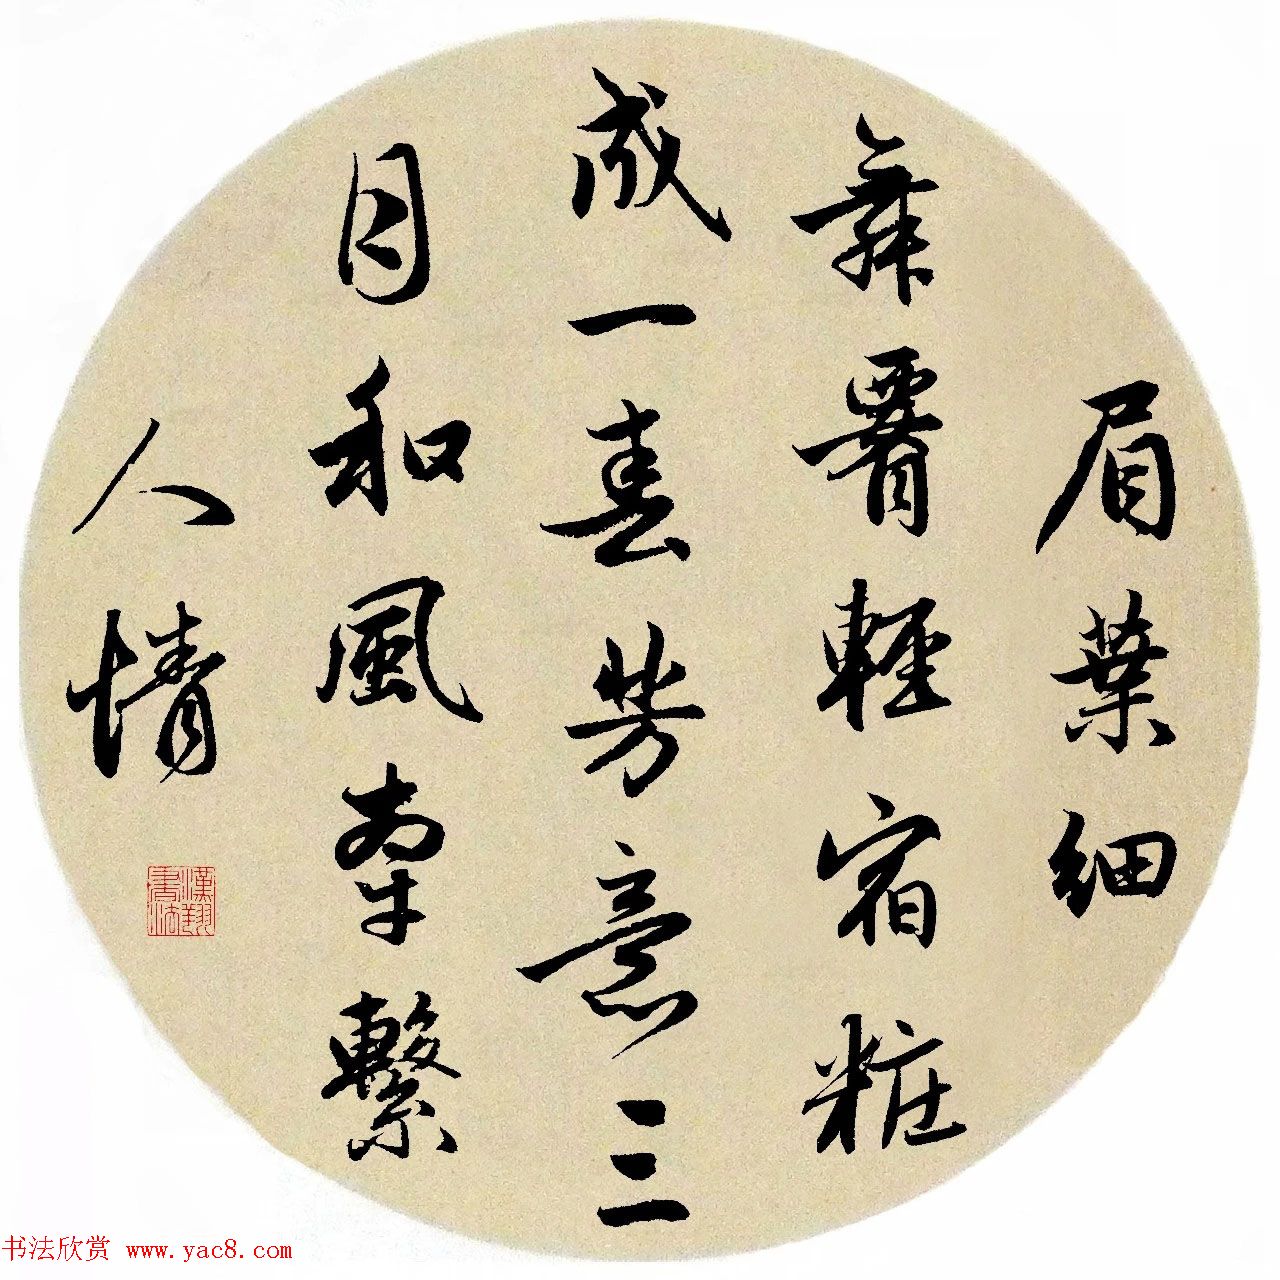 眉葉細
舞罾輕宿粧
成一春芳意三
月和風牽繫
人情
漢翔書法
书法欣赏 www.yac8.com